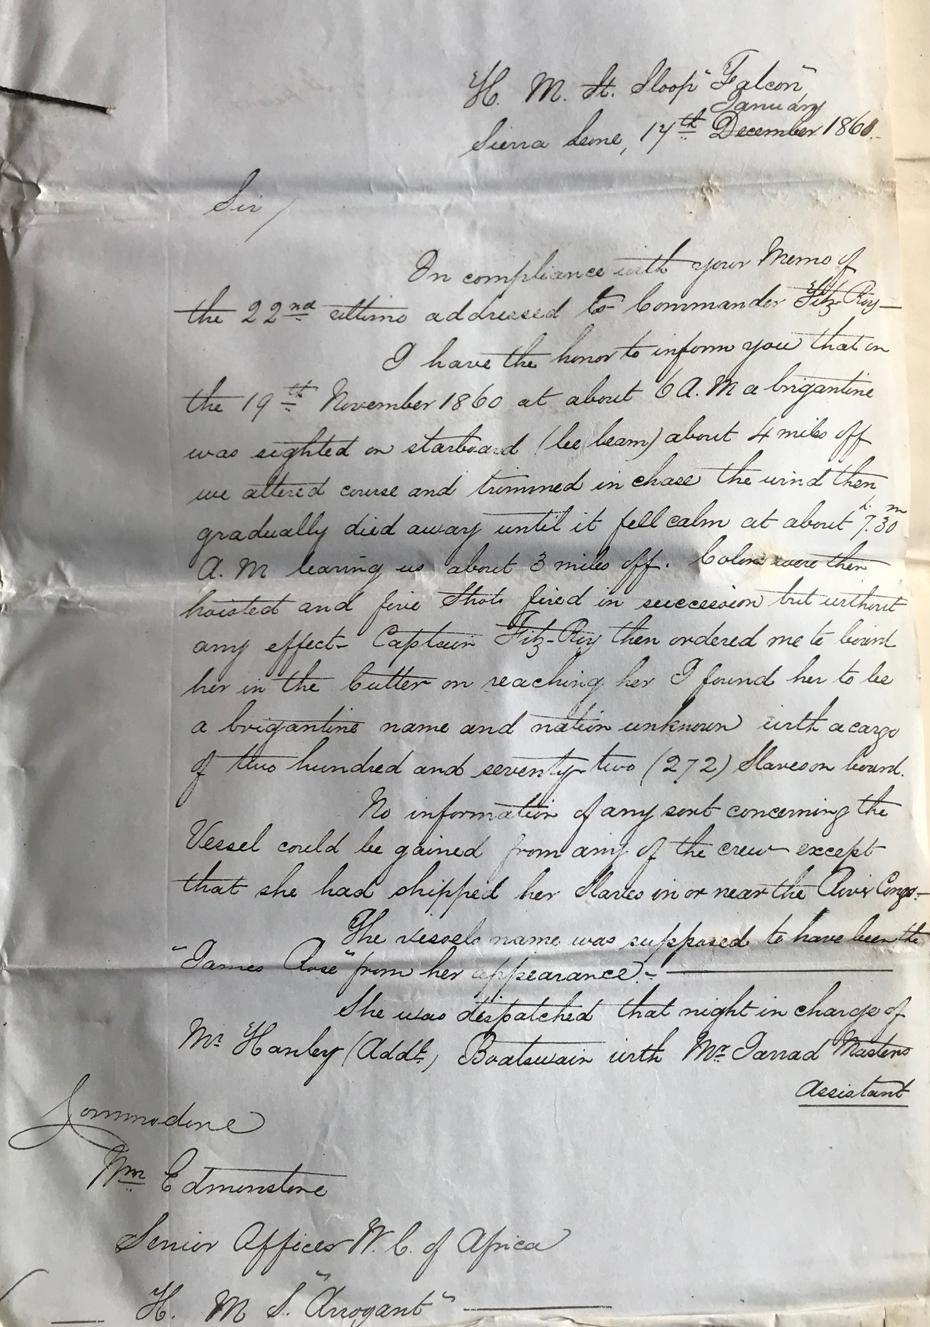 H. M. St. Sloop "Falcon"
January
Sierra Leone, 17th December 1860.
Sir/
In compliance with your Memo of
the 22nd ultimo addressed to Commander Fitz-Roy—
I have the honor to inform you that on
the 19th November 1860 at about 6 A.M a brigantine
was sighted on starboard (lee beam) about 4 miles off
we altered course and trimmed in chase the wind then
gradually died away until it fell calm at about 7.30
A.M leaving us about 3 miles off. Colors were then
hoisted and five Shots fired in succession but without
any effect- Captain Fitz-Roy then ordered me to board
her in the Cutter on reaching her I found her to be
a brigantine name and nation unknown with a cargo
of two hundred and seventy-two (272) Slaves on board.
No information of any sort concerning the
Vessel could be gained from any of the crew except
that she had shipped her Slaves in or near the River Congo.—
The vessels name was supposed to have been the
"James Rose" from her appearance.-
She was dispatched that night in charge of
Mr Hanley (Addl.) Boatswain with Mr Jarrad Masters
Assistant
Commodore
Wm Edmonstone
Senior Officer W. C. of Africa
H. M. S. "Arrogant"